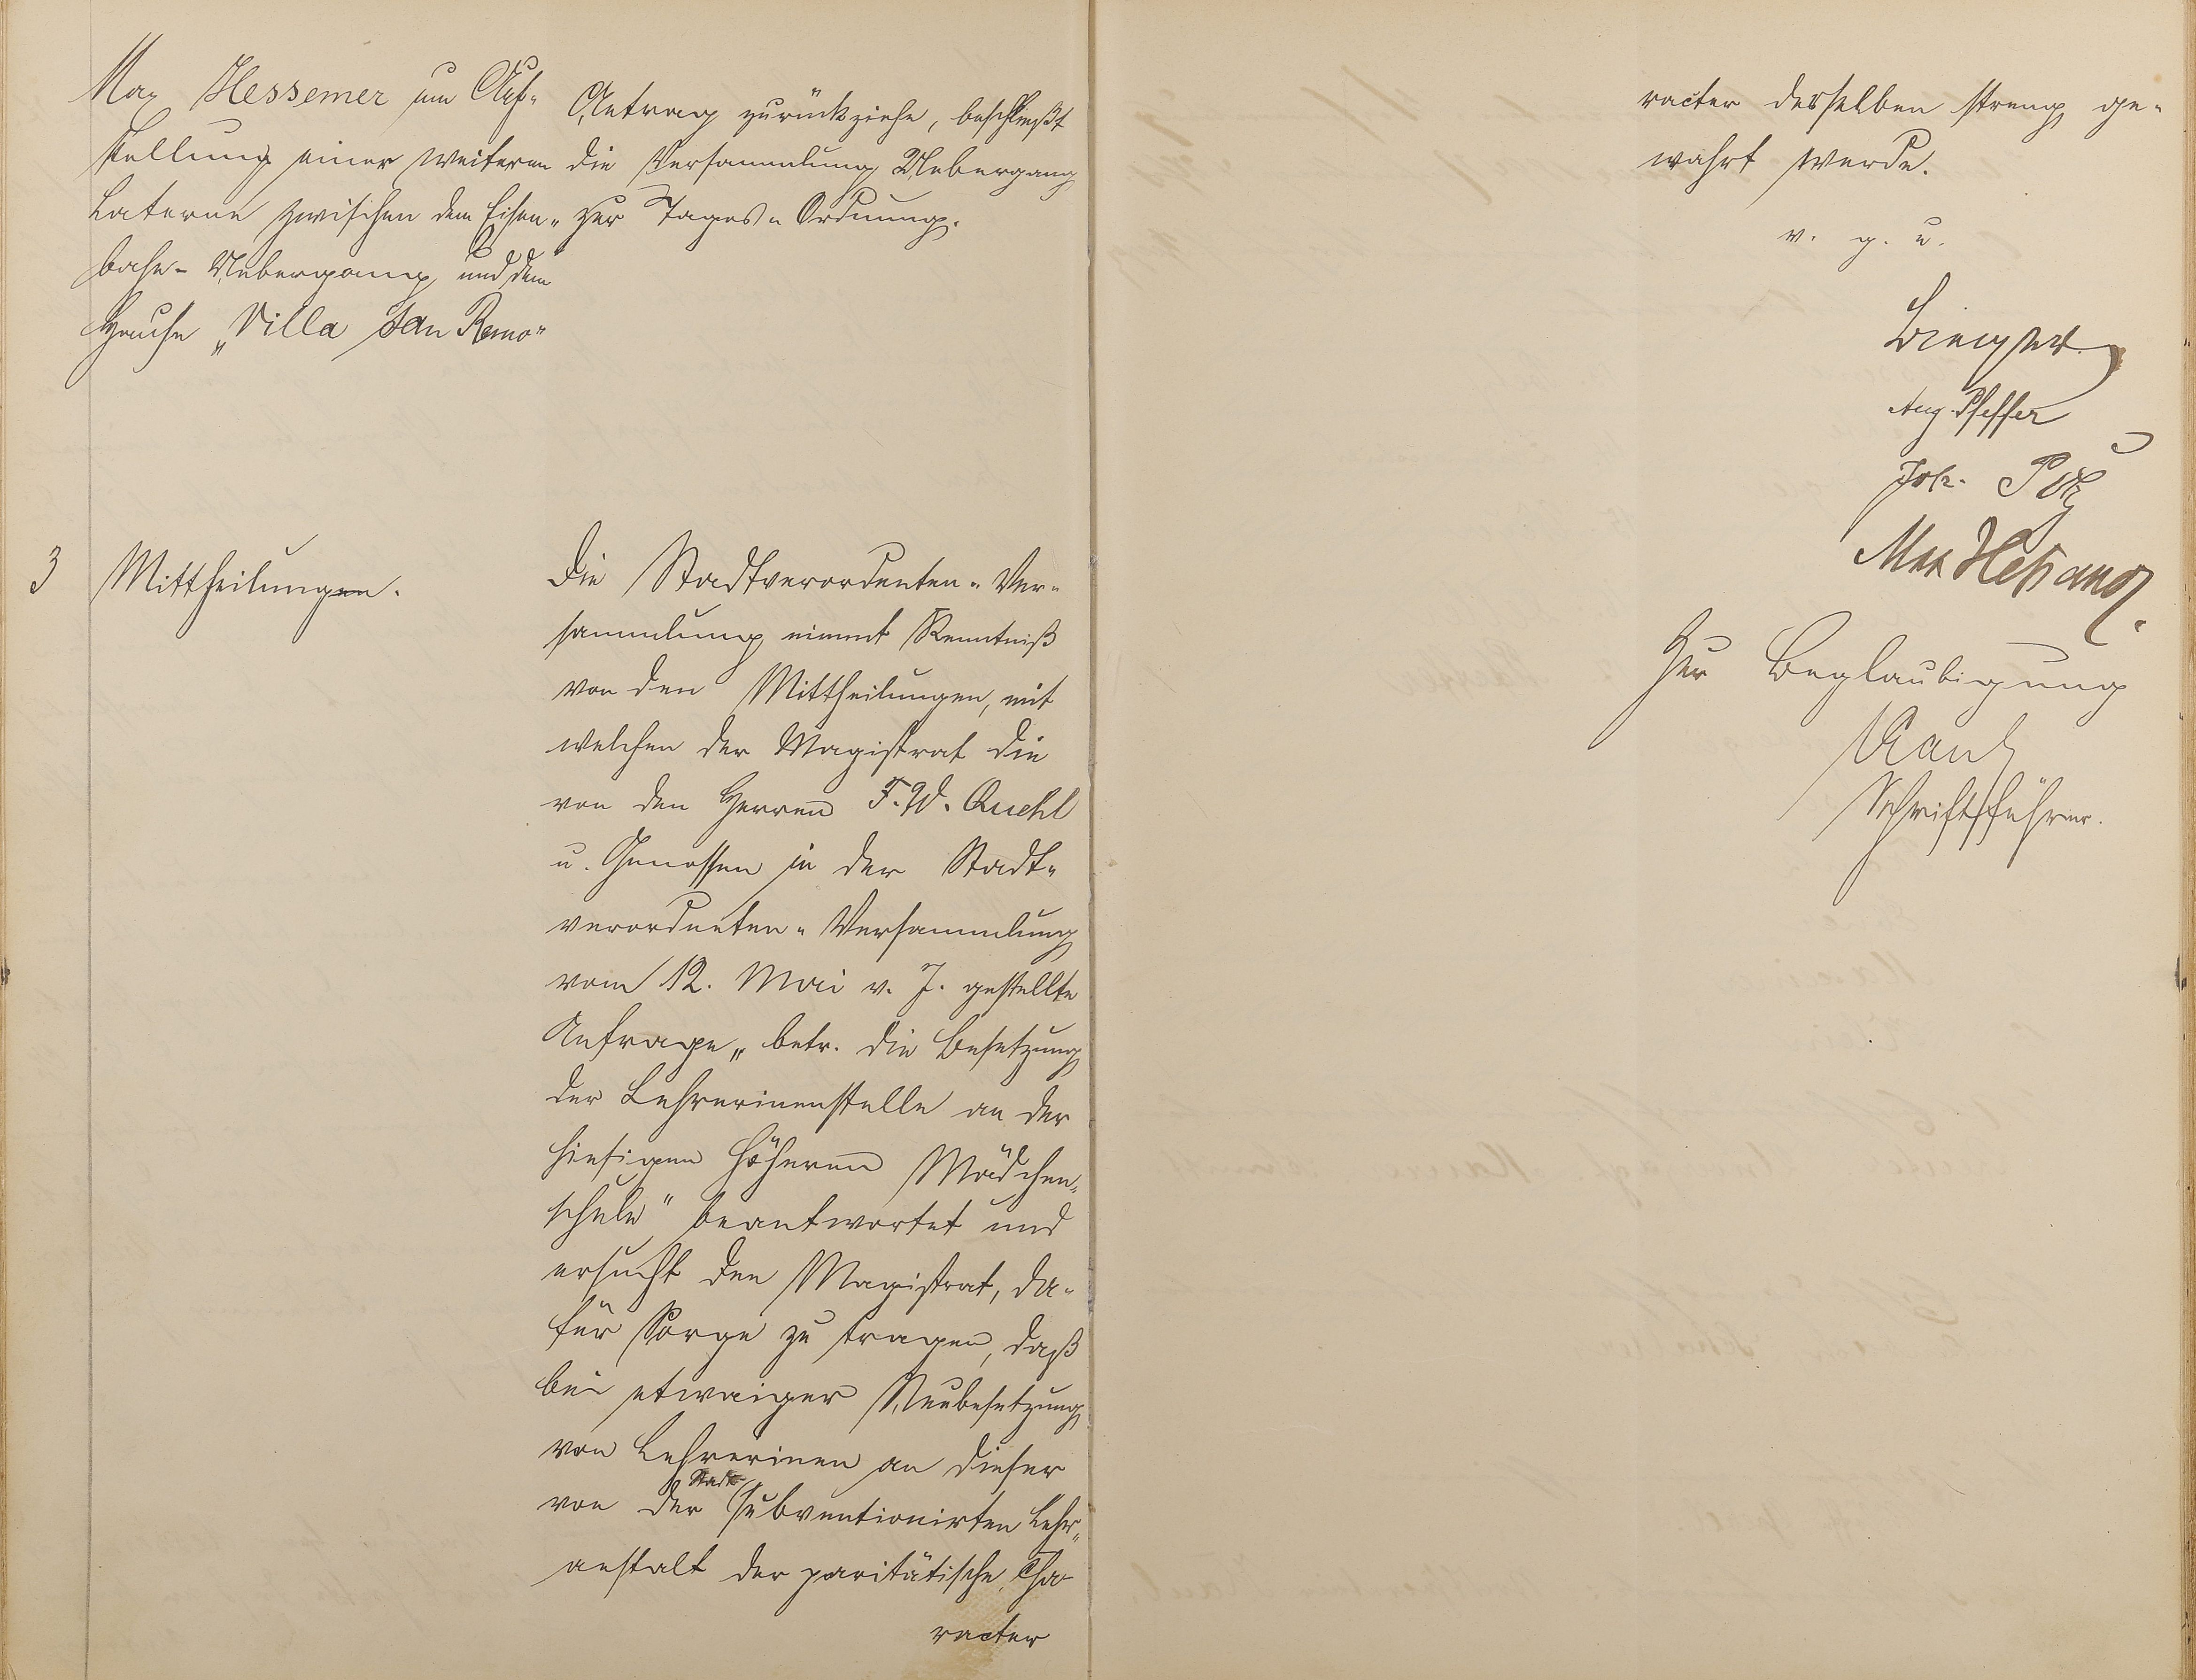 Max Hessemer um Auf-
stellung einer weiteren
Laterne zwischen dem Eisen-
bahn-Uebergang und dem
Hause „Villa San Remo"
Antrag zurückziehe, beschließt
die Versammlung Uebergang
zur Tages-Ordnung.
3 Mittheilungen.
Die Stadtverordneten-Ver-
sammlung nimmt Kenntniß
von den Mittheilungen, mit
welchen der Magistrat die
von den Herren F. W. Quehl
u. Genossen in der Stadt-
verordneten-Versammlung
vom 12. Mai v. J. gestellte
Anfrage „betr. die Besetzung
der Lehrerinenstelle an der
hiesigen höheren Mädchen-
schule" beantwortet und
ersucht den Magistrat, da-
für Sorge zu tragen, daß
bei etwaiger Neubesetzung
von Lehrerinen an dieser
von der Stadt subventionirten Lehr-
anstalt der paritätische Cha-
racter
racter desselben streng ge-
wahrt werde.
v. g. u.
Aug. Pfeffer
Joh.
Max
Zur Beglaubigung
Schriftführer.